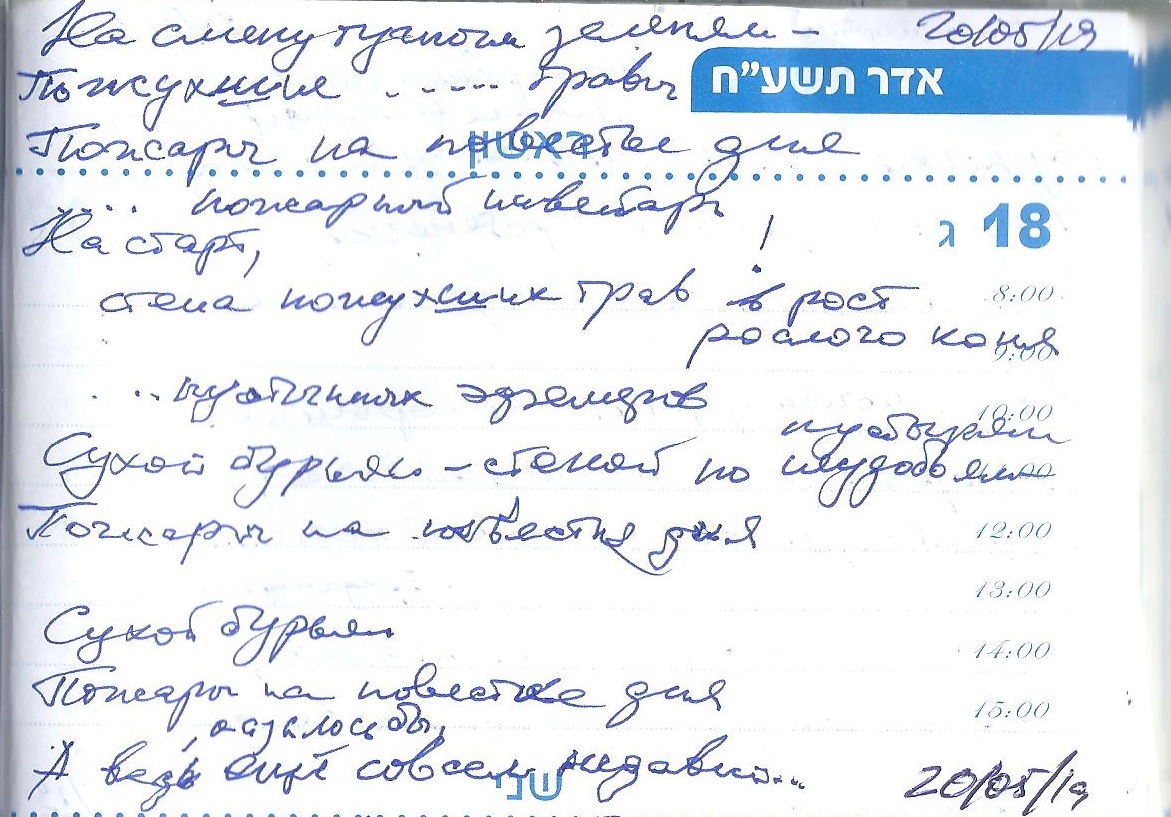 На смену зелени – 20/05/19
Пожухшие ..... травы
אדר תשע״ח
Пожары на повестке дня
ראשון
.... пожарный инвентарь
На старт, !
18 ג
стена пожухших трав в рост 8:00
рослого коня
9:00
...
10:00
Сухой бурьян – стеной по неудобьям
12:00
Пожары на повестке дня
13:00
Сухой бурьян
14:00
Пожары на повестке дня
15:00
, казалось бы,
А ведь ещё совсем недавно...
שני
20/05/19